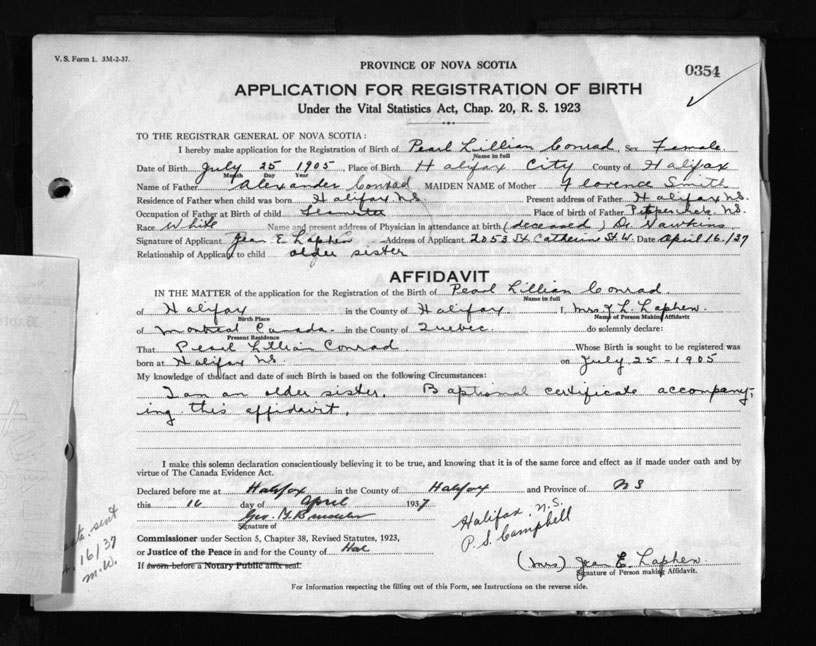 V. S. Form 1. 3M-2-37.
PROVINCE OF NOVA SCOTIA
0354
APPLICATION FOR REGISTRATION OF BIRTH
Under the Vital Statistics Act, Chap. 20, R. S. 1923
TO THE REGISTRAR GENERAL OF NOVA SCOTIA:
I hereby make application for the Registration of Birth of Pearl Lillian Conrad, Sex Female.
Name in full
Date of Birth July 25 1905, Place of Birth Halifax City County of Halifax
Month Day Year
Name of Father Alexander Conrad MAIDEN NAME of Mother Florence Smith
Residence of Father when child was born Halifax N.S. Present address of Father Halifax N.S.
Occupation of Father at Birth of child Place of Birth of Father N.S.
Race White Name and present address of Physician in attendance at birth (deceased) Dr. Hawkins
Signature of Applicant Jean E. Laphen Address of Applicant 2053 St. Catherine St. W. Date April 16/37
Relationship of Applicant to child older sister
AFFIDAVIT
IN THE MATTER of the application for the Registration of the Birth of Pearl Lillian Conrad.
Name in full
of Halifax in the County of Halifax. I, Mrs. J. L. Laphen.
Birth Place Name of Person Making Affidavit
of Montreal Canada in the County of Quebec. do solemnly declare:
Present Residence
That Pearl Lillian Conrad. Whose Birth is sought to be registered was
born at Halifax N.S. on July 25 - 1905
My knowledge of the fact and date of such Birth is based on the following Circumstances:
I am an older sister. Baptismal certificate accompany-
ing this affidavit.
I make this solemn declaration conscientiously believing it to be true, and knowing that it is of the same force and effect as if made under oath and by
virtue of The Canada Evidence Act.
Declared before me at Halifax in the County of Halifax and Province of N S
this 16 day of April 1937
Geo.
Signature of
Halifax, N.S.
P. S. Campbell
Commissioner under Section 5, Chapter 38, Revised Statutes, 1923,
or Justice of the Peace in and for the County of Hal
If sworn before a Notary Public affix seal.
(Mrs) Jean E. Laphen.
Signature of Person making Affidavit.
For Information respecting the filling out of this Form, see Instructions on the reverse side.
sent
16/37
m.W.